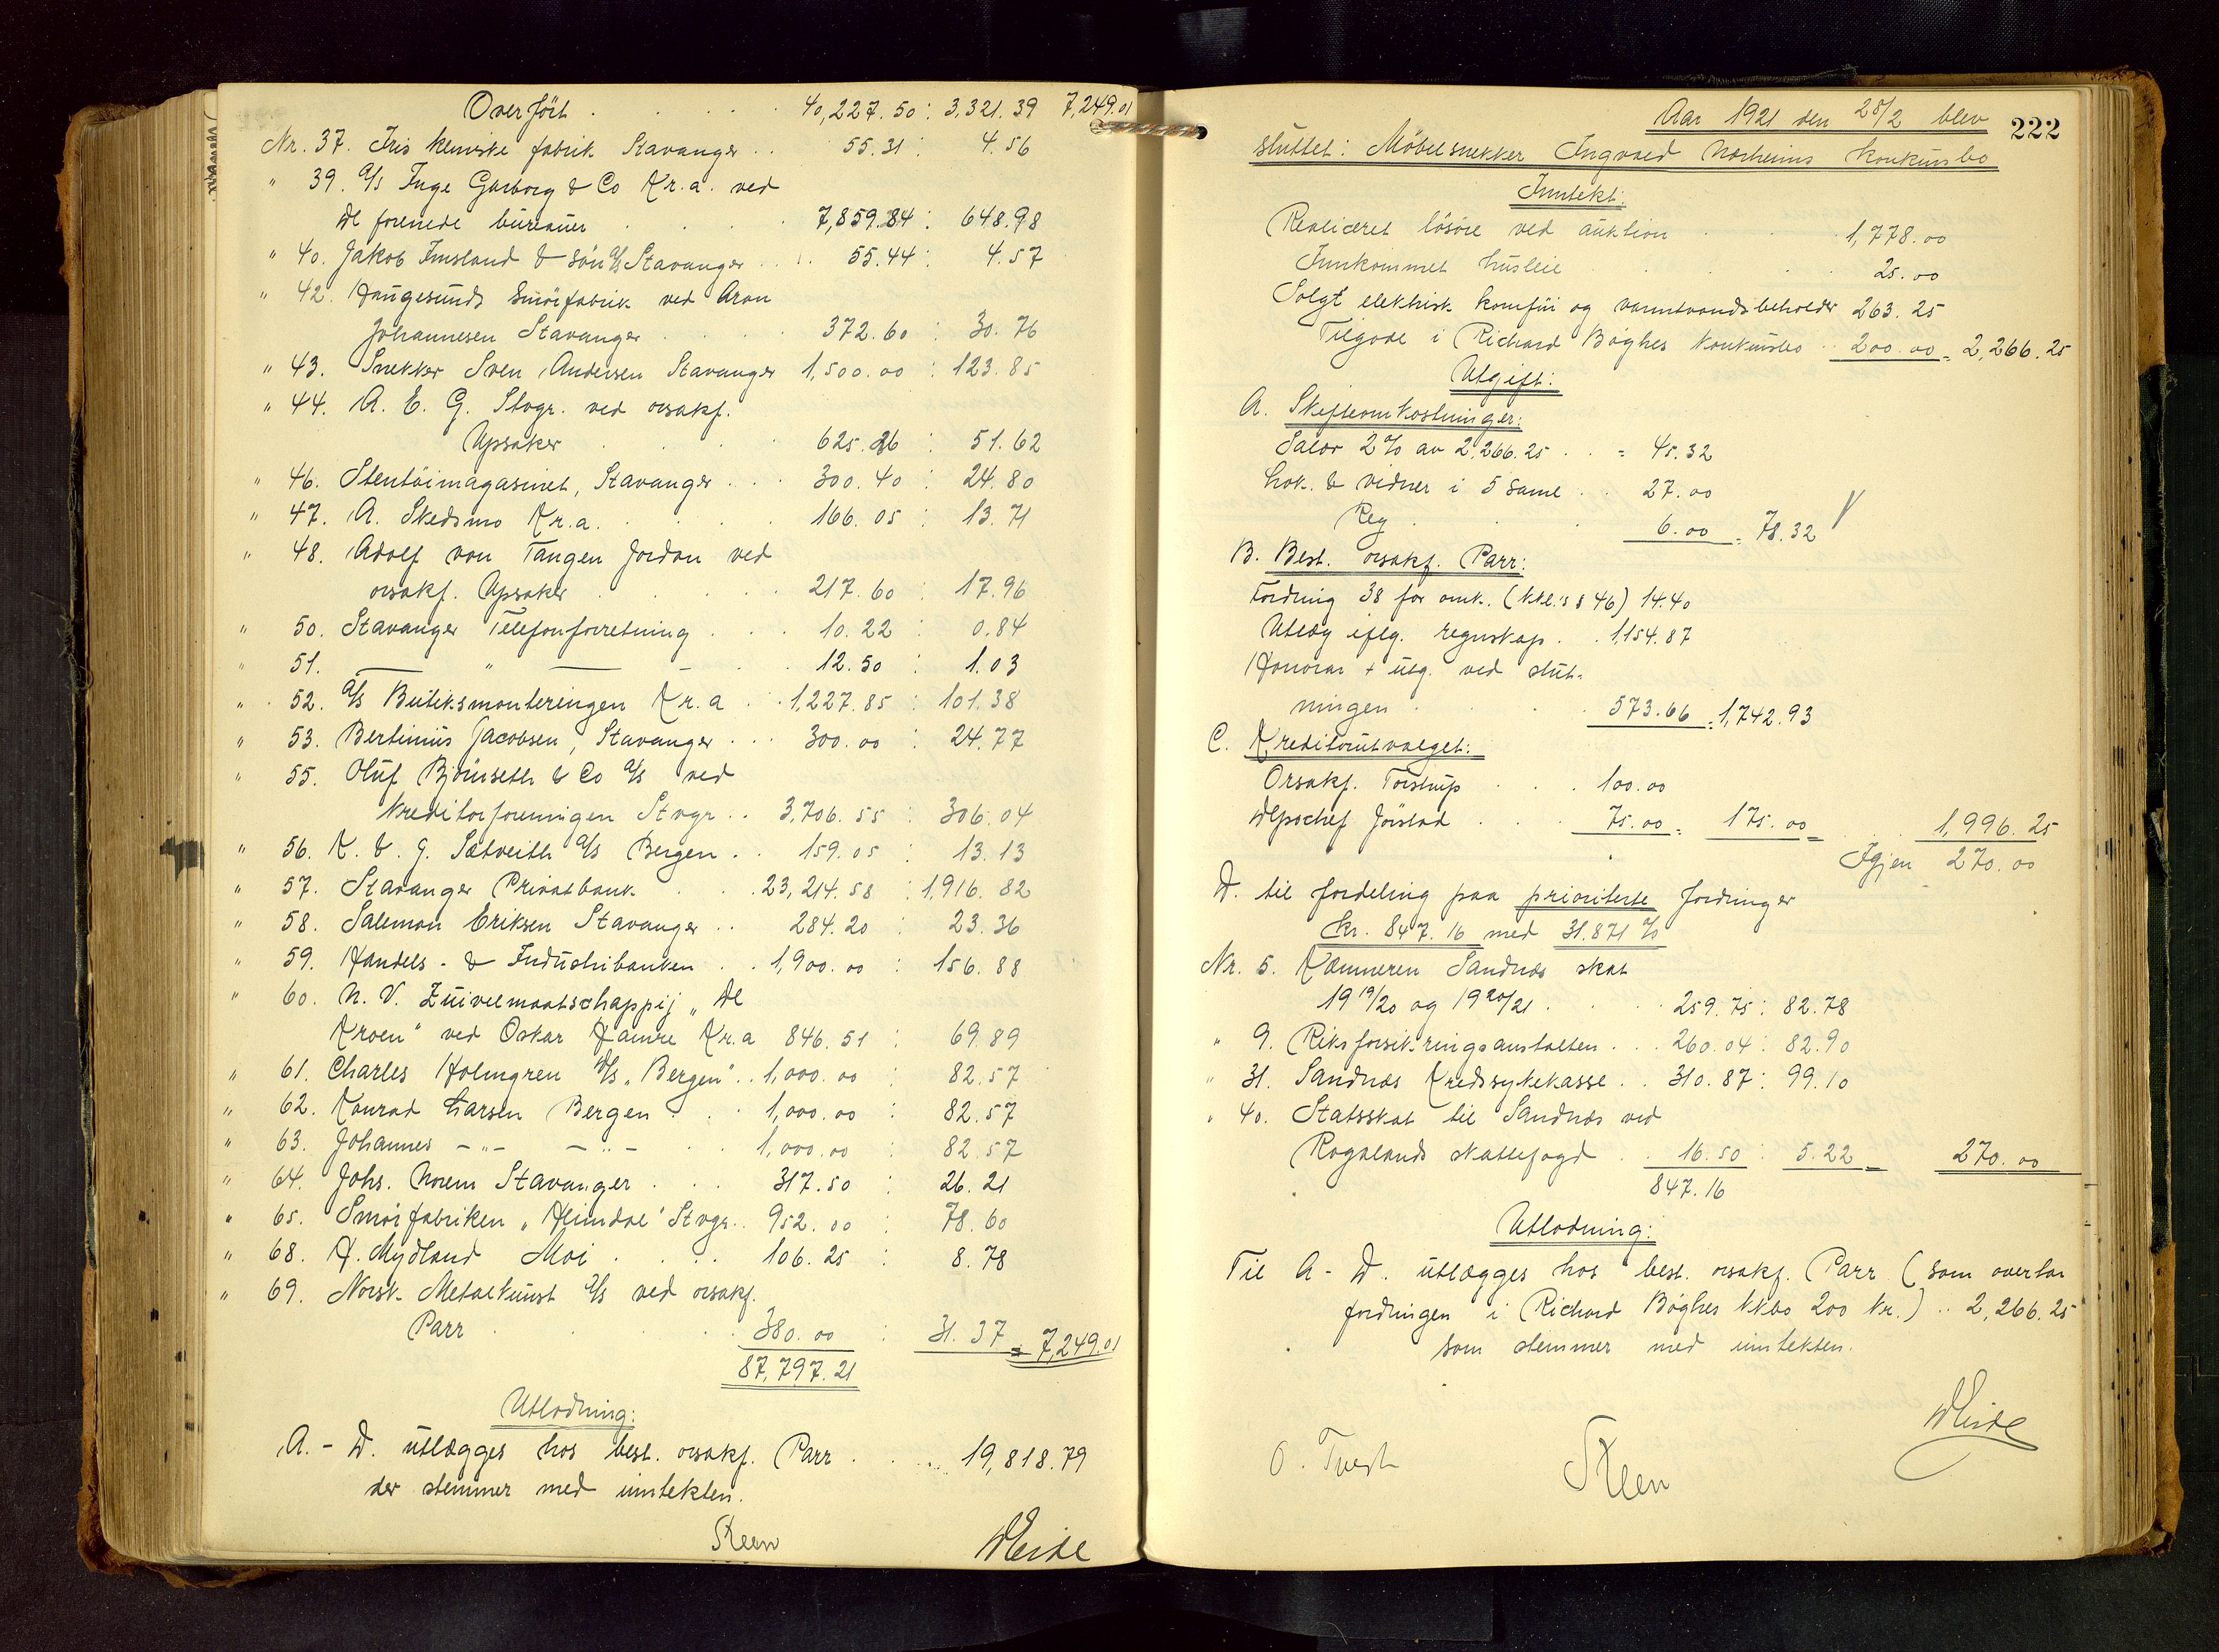 Overført . . . . 40,227.50 : 3,321.39 7,249.01
Nr. 37. Iris kemiske fabrik Stavanger . . 55.31 . 4.56
" 39. A/S Inge Garborg & Co Kr.a. ved
De forenede bureauer . . . . 7,859.84 : 648.98
" 40. Jakob Imsland & Søn A/S Stavanger . . 55.44 : 4.57
" 42. Haugesunds Smörfabrik ved Aron
Johannesen Stavanger . . . 372.60 : 30.76
" 43. Snekker Sven Andersen Stavanger 1,500.00 : 123.85
" 44. A. E. G. Stvgr. ved orsakf.
Upsaker . . . 625.26 : 51.62
" 46. Stentöimagasinet, Stavanger . . . 300.40 : 24.80
" 47. A. Skedsmo Kr.a. . . . . 166.05 : 13.71
" 48. Adolf von Tangen Jordan ved
orsakf. Upsaker . . . . 217.60 : 17.96
" 50. Stavanger Telefonforretning . . . 10.22 : 0.84
" 51. — " — — . . 12.50 : 1.03
" 52. A/S Butiksmonteringen Kr.a . . 1,227.85 : 101.38
" 53. Bertinius Jacobsen, Stavanger . . . 300.00 : 24.77
" 55. Oluf Bjönseth & Co A/S ved
Kreditorforeningen Stvgr . . 3,706.55 : 306.04
" 56. K. & G. Sætveith A/S Bergen . . 159.05 : 13.13
" 57. Stavanger Privatbank . . . 23,214.58 : 1,916.82
" 58. Salemon Eriksen Stavanger . . 284.20 : 23.36
" 59. Handels- & Industribanken . . 1,900.00 : 156.88
" 60. N. V. Zuivelmaatschappij "De
Kroen" ved Oskar Hamre Kr.a 846.51 : 69.89
" 61. Charles Holmgren D/S "Bergen" . . 1,000.00 : 82.57
" 62. Konrad Larsen Bergen . . . 1,000.00 : 82.57
" 63. Johannes - " - - " - . . 1,000.00 : 82.57
" 64. Johs. Norem Stavanger . . . 317.50 : 26.21
" 65. Smörfabriken "Heimdal" Stvgr. . 952.00 : 78.60
" 68. H. Mydland Moi . . . . 106.25 : 8.78
" 69. Norsk Metalkunst A/S ved orsakf.
Parr . . . . 380.00 : 31.37 = 7,249.01
87,797.21
Utlodning:
A. - D. utlægges hos best. orsakf. Parr . . . 19,818.79
der stemmer med inntekten.
Steen
Aar 1921 den 28/2 blev 222
sluttet: Möbelsnekker Ingvald Norheims konkursbo
Inntekt:
Realiceret lösöre ved auktion . . . 1,778.00
Innkommet husleie . . . . 25.00
Solgt elektrisk komfur og varmtvandsbeholder 263.25
Tilgode i Richard Böghes konkursbo . . 200.00 = 2,266.25
Utgift:
A. Skifteomkostninger:
Salær 2% av 2,266.25 . . = 45.32
Lok. & vidner i 5 saml . . 27.00
Reg . . . . 6.00 = 78.32
B. Best. orsakf. Parr:
Fordring 38 for omk. (Kkl.s § 46) 14.40
Utlæg iflg. regnskap . . 1,154.87
Honorar + utg. ved slut-
ningen . . . . 573.66 = 1,742.93
C. Kreditorutvalget:
Orsakf. Torstrup . . . 100.00
Depochef Jörstad . . . 75.00 = 175.00 = . . . 1,996.25
Igjen 270.00
D. til fordeling paa prioriterte fordringer
kr. 847.16 med 31.871 %
Nr. 5. Kæmneren Sandnæs skat
19 19/20 og 19 20/21 . . . . 259.75 : 82.78
" 9. Riksforsikringsanstalten . . . 260.04 : 82.90
" 31. Sandnæs Kredssykekasse . . 310.87 : 99.10
" 40. Statsskat til Sandnæs ved
Rogalands skattefogd . . 16.50 : 5.22 = 270.00
847.16
Utlodning:
Til A - D. utlægges hos best. orsakf. Parr (som overtar
fordringen i Richard Böghes kkbo 200 kr.) . . 2,266.25
som stemmer med inntekten.
Steen